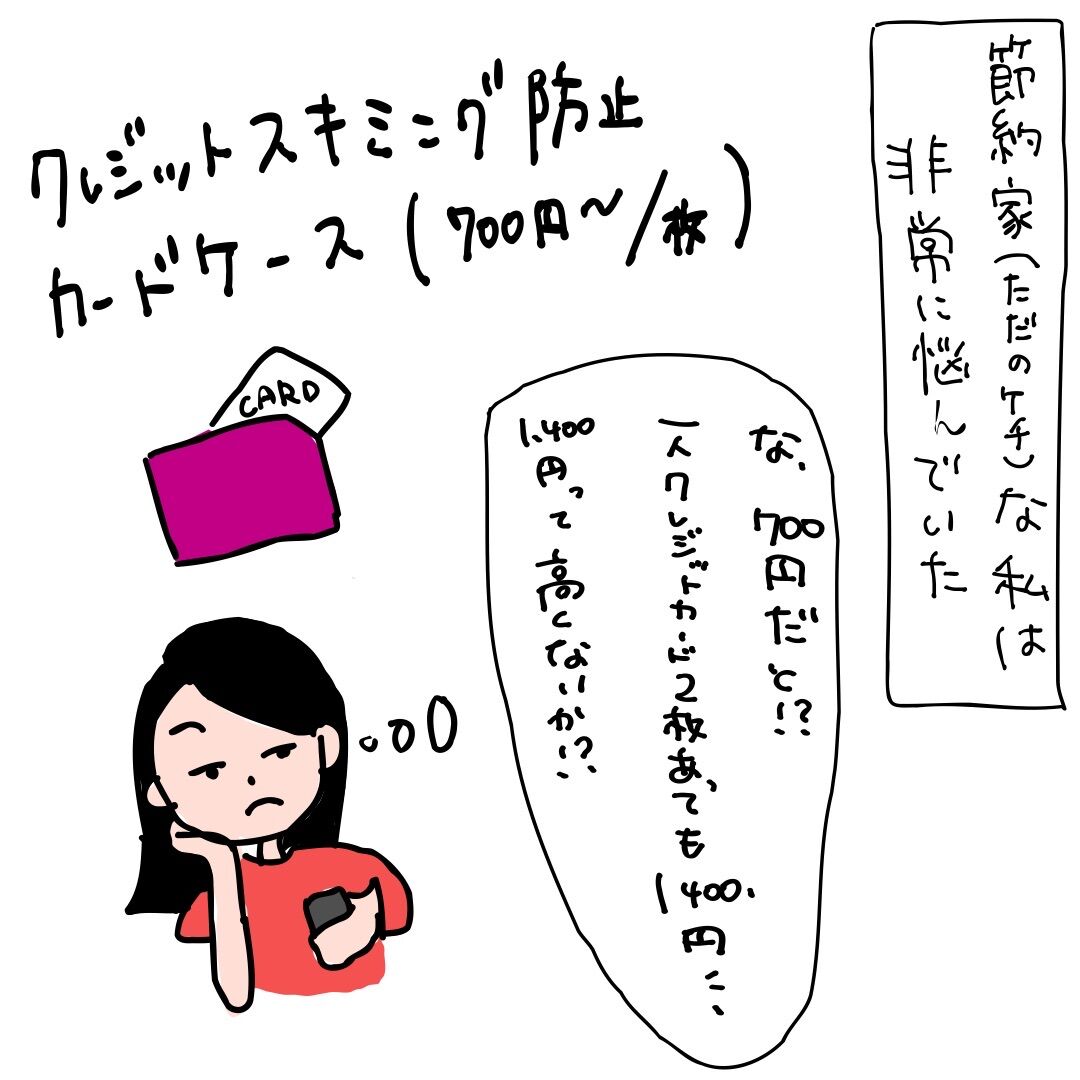 節約家(ただのケチ)な私は
非常に悩んでいた
クレジットスキミング防止
カードケース(700円～/枚)
CARD
な、700円だと!?
一人クレジットカード2枚あっても1400.円…
1,400円って高くないか!?